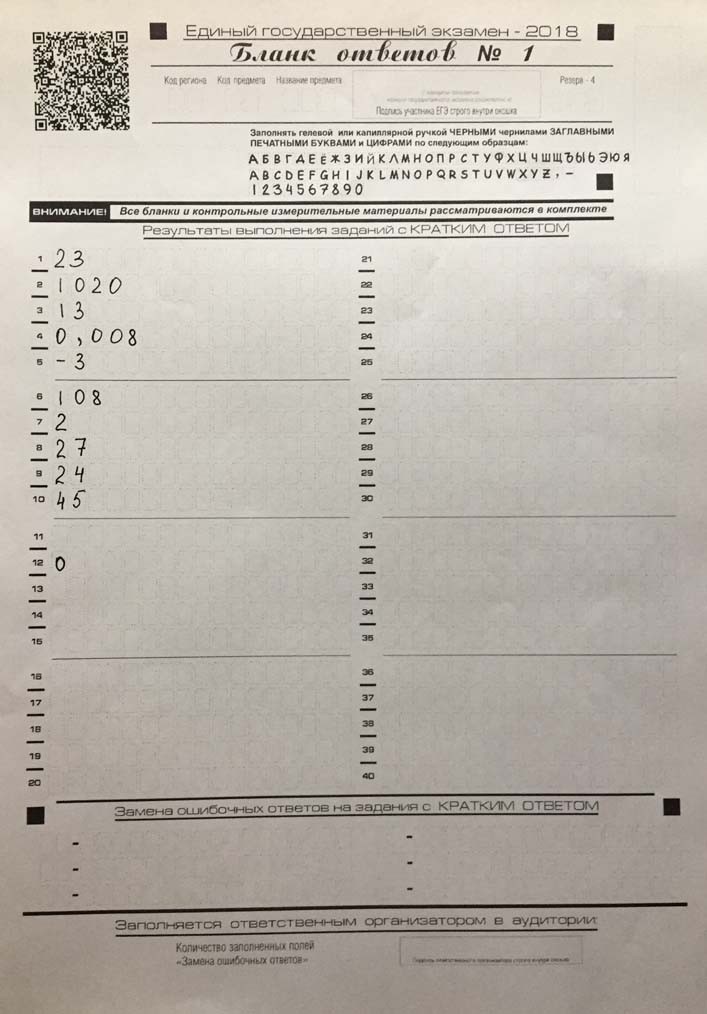 Единый государственный экзамен - 2018
Бланк ответов № 1
Код региона Код предмета Название предмета Резерв - 4
Подпись участника ЕГЭ строго внутри окошка
Заполнять гелевой или капиллярной ручкой ЧЕРНЫМИ чернилами ЗАГЛАВНЫМИ
ПЕЧАТНЫМИ БУКВАМИ и ЦИФРАМИ по следующим образцам:
АБВГДЕЁЖЗИЙКЛМНОПРСТУФХЦЧШЩЪЫЬЭЮЯ
ABCDEFGHIJKLMNOPQRSTUVWXYZ, -
1234567890
ВНИМАНИЕ! Все бланки и контрольные измерительные материалы рассматриваются в комплекте
Результаты выполнения заданий с КРАТКИМ ОТВЕТОМ
1 23 21
2 1020 22
3 13 23
4 0,008 24
5 -3 25
6 108 26
7 2 27
8 27 28
9 24 29
10 45 30
11 31
12 0 32
13 33
14 34
15 35
16 36
17 37
18 38
19 39
20 40
Замена ошибочных ответов на задания с КРАТКИМ ОТВЕТОМ
- -
- -
- -
Заполняется ответственным организатором в аудитории:
Количество заполненных полей
«Замена ошибочных ответов»
Подпись ответственного организатора строго внутри окошка